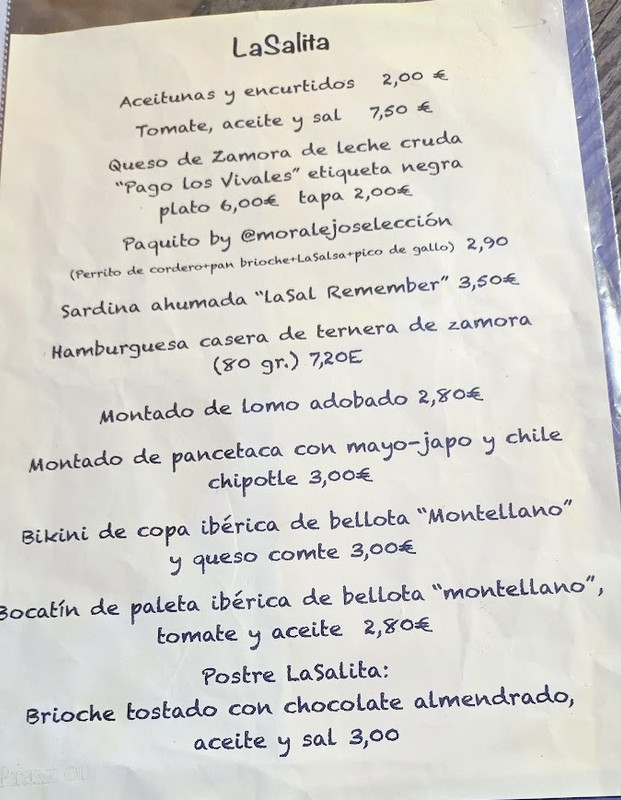 LaSalita
Aceitunas y encurtidos 2,00 €
Tomate, aceite y sal 7,50 €
Queso de Zamora de leche cruda
"Pago los Vivales" etiqueta negra
plato 6,00€ tapa 2,00€
Paquito by @moralejoselección
(Perrito de cordero+pan brioche+LaSalsa+pico de gallo) 2,90
Sardina ahumada "LaSal Remember" 3,50€
Hamburguesa casera de ternera de zamora
(80 gr.) 7,20E
Montado de lomo adobado 2,80€
Montado de pancetaca con mayo-japo y chile
chipotle 3,00€
Bikini de copa ibérica de bellota "Montellano"
y queso comte 3,00€
Bocatín de paleta ibérica de bellota "montellano",
tomate y aceite 2,80€
Postre LaSalita:
Brioche tostado con chocolate almendrado,
aceite y sal 3,00